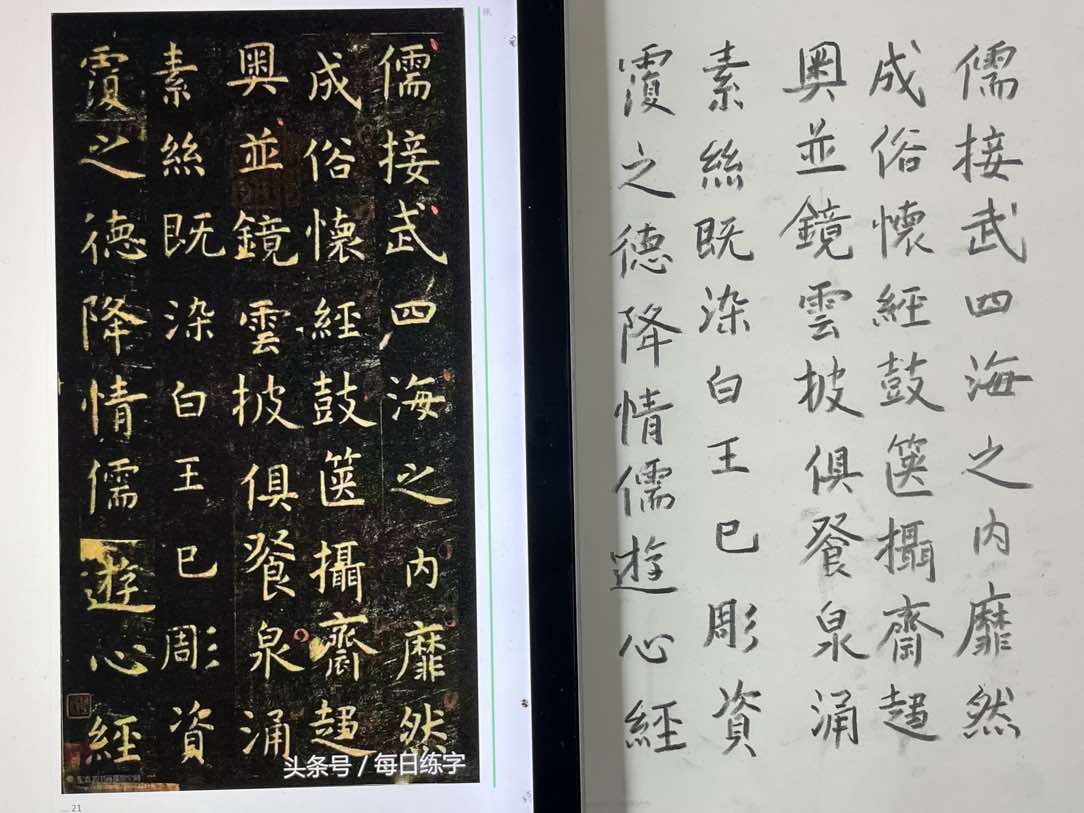 儒接武四海之内靡然
成俗懷經鼓篋攝齋趍
奥並鏡雲披俱餐泉涌
素絲既染白王已彫資
覆之德降情儒遊心經
头条号 / 每日练字
21
儒接武四海之内靡然
成俗懷經鼓篋攝齋趍
奥並鏡雲披俱餐泉涌
素絲既染白王已彫資
覆之德降情儒遊心經